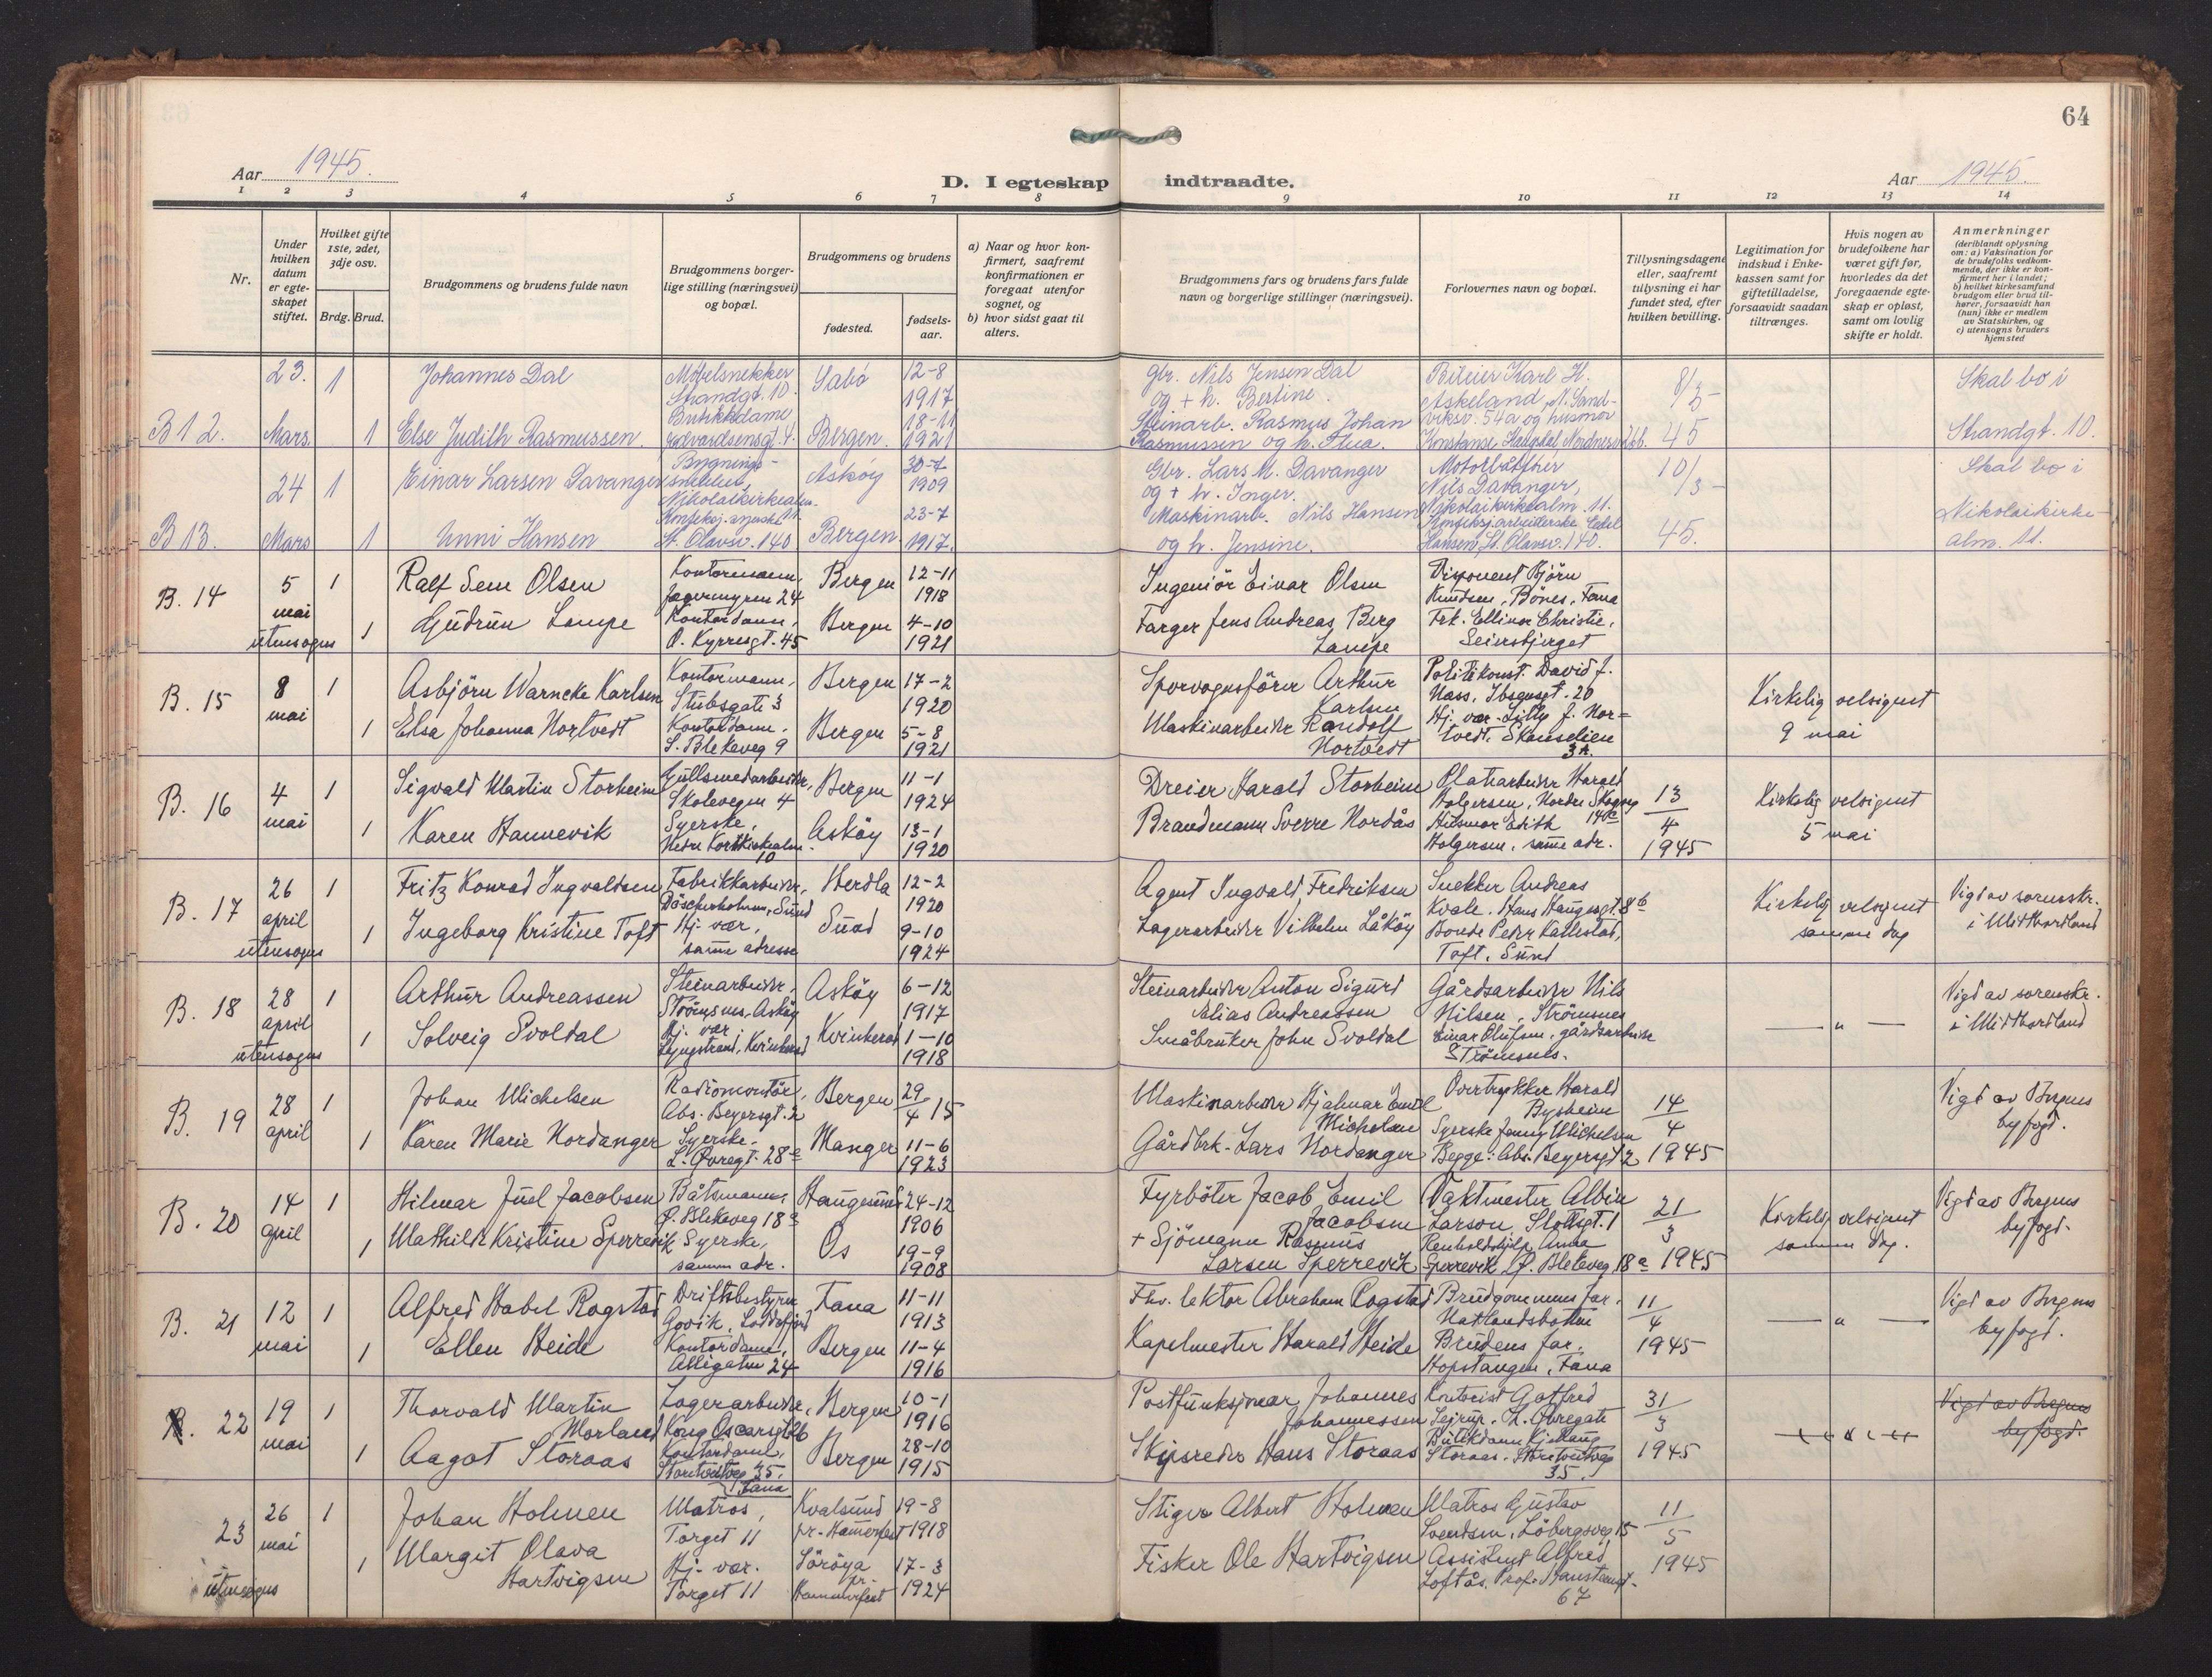 64
Aar 1945.
D. I egteskap indtraadte.
Aar 1945.
1 2 3 4 5 6 7 8 9 10 11 12 13 14
Nr.
Under hvilken datum er egteskapet stiftet.
Hvilket gifte 1ste, 2det, 3dje osv.
Brdg. Brud.
Brudgommens og brudens fulde navn
Brudgommens borgerlige stilling (næringsvei) og bopæl.
Brudgommens og brudens
fødested.
fødselsaar.
a) Naar og hvor konfirmert, saafremt konfirmationen er foregaat utenfor sognet, og
b) hvor sidst gaat til alters.
Brudgommens fars og brudens fars fulde navn og borgerlige stillinger (næringsvei).
Forlovernes navn og bopæl.
Tillysningsdagene eller, saafremt tillysning ei har fundet sted, efter hvilken bevilling.
Legitimation for indskud i Enkekassen samt for giftetilladelse, forsaavidt saadan tiltrænges.
Hvis nogen av brudefolkene har været gift før, hvorledes da det foregaaende egteskap er opløst, samt om lovlig skifte er holdt.
Anmerkninger
(deriblandt oplysning om: a) Vaksination for de brudefolks vedkommende, der ikke er konfirmert her i landet;
b) hvilket kirkesamfund brudgom eller brud tilhører, forsaavidt han (hun) ikke er medlem av Statskirken, og
c) utensogns bruders hjemsted
B 12. 23. Mars. 1 Johannes Dal Møbelsnekker Strandgt. 10. Sabø 12-8 1917
gbr. Nils Jensen Dal og + h. Bertine. Bileier Karl H. Askeland, N. Sandviksv. 54a og husmor 8/3 - 45 Skal bo i Strandgt. 10.
1 Else Judith Rasmussen. Butikkdame Edvardsensgt. 4. Bergen. 18-11 1921
Steinarb. Rasmus Johan Rasmussen og h. Thea. Konstanse
B 13. 24 Mars 1 Einar Larsen Davanger Bygningssnekker, Nikolaikirkealm. Askøy 30-7 1909
Gbr. Lars M. Davanger og + h. Inger. Motorbåtfører Nils Davanger, Nikolaikirkealm. 11. 10/3 - 45. Skal bo i Nikolaikirkealm. 11.
1 Unni Hansen St. Olavsv. 140 Bergen. 23-7 1917.
Maskinarb. Nils Hansen og h. Jensine. Konfeksj. arbeiderske Hansen, St. Olavsv. 140.
B. 14 5 mai utensogns 1 Ralf Sem Olsen Kontormann, 24 Bergen 12-11 1918
Ingeniör Einar Olsen Disponent Björn Knudsen, Bönes, Fana
1 Gudrun Lampe Kontordame, O. Kyrresgt. 45 Bergen 4-10 1921
Farger Jens Andreas Berg Lampe Frk. Ellinor Christie, Seiersbjerget
B. 15 8 mai 1 Asbjörn Warncke Karlsen Kontormann, Stubsgate 3 Bergen 17-2 1920
Sporvognsförer Arthur Karlsen Politikonst. David J. Næss, Ibsensgt. 20 Kirkelig velsignet 9 mai
1 Elsa Johanna Nortvedt Kontordame, S. Blekeveg 9 Bergen 5-8 1921
Maskinarbeider Randolf Nortvedt Hj. vær. Lilly J. Nortvedt, Skanselien 3A.
B. 16 4 mai 1 Sigvald Martin Storheim Gullsmedarbeider, Skolevegen 4 Bergen 11-1 1924
Dreier Harald Storheim Platearbeider Harald Holgersen, Nordre Skogveg 13/4 1945 Kirkelig velsignet 5 mai
1 Karen Hannevik Syerske, Nedre Korskirkealm. 10 Asköy 13-1 1920
Brandmann Sverre Nordås Husmor Edith Holgersen, samme adr.
B. 17 26 april utensogns 1 Fritz Konrad Ingvaldsen Fabrikkarbeider, Sund Herdla 12-2 1920
Agent Ingvald Fredriksen Snekker Andreas Kvale, Hans Haugesgt. 8b Kirkelig velsignet samme dag Vigd av sorenskr. i Midthordland
1 Ingeborg Kristine Toft Hj. vær, samme adresse Sund 9-10 1924
Lagerarbeider Vilhelm Låköy Bonde Peder Kallestad, Toft, Sund
B. 18 28 april utensogns 1 Arthur Andreassen Steinarbeider, Strömsnes, Asköy Asköy 6-12 1917
Steinarbeider Anton Sigurd Elias Andreassen Gårdsarbeider Nils Nilsen, Strömsnes — " — Vigd av sorenskr. i Midthordland
1 Solveig Svoldal Hj. vær Ljungstrand, Kvinherad Kvinherad 1-10 1918
Småbruker John Svoldal Einar Olufsen, gårdsarbeider Strömsnes.
B. 19 28 april 1 Johan Michelsen Radiomontör, Abs. Beyersgt. 2 Bergen 29/4 15
Maskinarbeider Hjalmar Emil Michelsen Overtrykker Harald Bysheim 14/4 1945 Vigd av Bergens byfogd.
1 Karen Marie Nordanger Syerske. L. Øvregt. 28a Manger 11-6 1923
Gårdbrk. Lars Nordanger Syerske Jenny Michelsen Begge: Abs. Beyersgt 2
B. 20 14 april 1 Hilmar Juel Jacobsen Båtsmann, Ø. Blekeveg 18a Haugesund 24-12 1906
Fyrböter Jacob Emil Jacobsen Vaktmester Albin Larson, Slottsgt. 1 21/3 1945 Kirkelig velsignet samme dag. Vigd av Bergens byfogd.
1 Mathilde Kristine Sperrevik Syerske, samme adr. Os 19-9 1908
+ Sjömann Rasmus Larsen Sperrevik Renholdshjelp Anna Sperrevik, Ø. Blekeveg 18a
B. 21 12 mai 1 Alfred Habel Rogstad Driftsbestyrer Govik, Loddefjord Fana 11-11 1913
Fhv. lektor Abraham Rogstad Brudgommens far, Natlandsbotten 11/4 1945 — " — Vigd av Bergens byfogd.
1 Ellen Heide Kontordame, Allegaten 24 Bergen 11-4 1916
Kapelmester Harald Heide Brudens far, Hopstangen, Fana
B. 22 19 mai 1 Thorvald Martin Morland Lagerarbeider, Kong Oscarsgt 26 Bergen 10-1 1916
Postfunksjonær Johannes Johannessen Kontorist Gotfred Sejrup, L. Øvregate 31/3 1945 Vigd av Bergens byfogd.
1 Aagot Storaas Kontordame, Storetveitveg 35, Fana Bergen 28-10 1915
Skipsreder Hans Storaas Butikdame Storaas, Storetveitveg 35.
23 26 mai utensogns 1 Johan Holmen Matros, Torget 11 Kvalsund pr. Hamerfest 19-8 1918
Stiger Albert Holmen Matros Gustav Svendsen, Löbergsveg 15 11/5 1945
1 Margit Olava Hartvigsen Hj. vær. Torget 11 Söröya pr. Hammerfest 17-3 1924
Fisker Ole Hartvigsen Assistent Alfred Loftås, Prof. Hanstensgt. 67